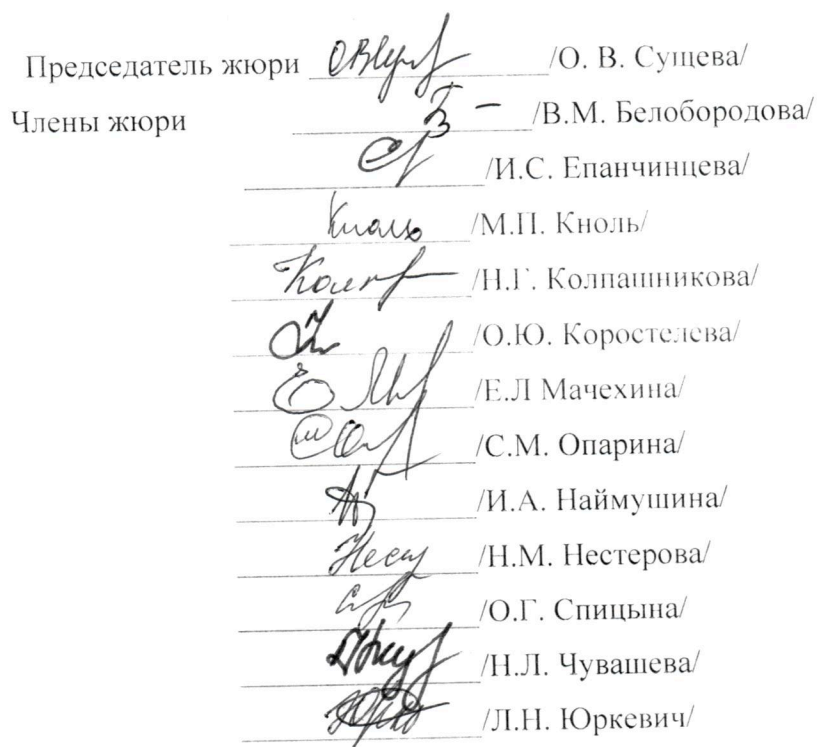 Председатель жюри /О. В. Сущева/
Члены жюри /В.М. Белобородова/
/И.С. Епанчинцева/
Кноль /М.П. Кноль/
/Н.Г. Колпашникова/
/О.Ю. Коростелева/
/Е.Л Мачехина/
/С.М. Опарина/
/И.А. Наймушина/
/Н.М. Нестерова/
/О.Г. Спицына/
/Н.Л. Чувашева/
/Л.Н. Юркевич/